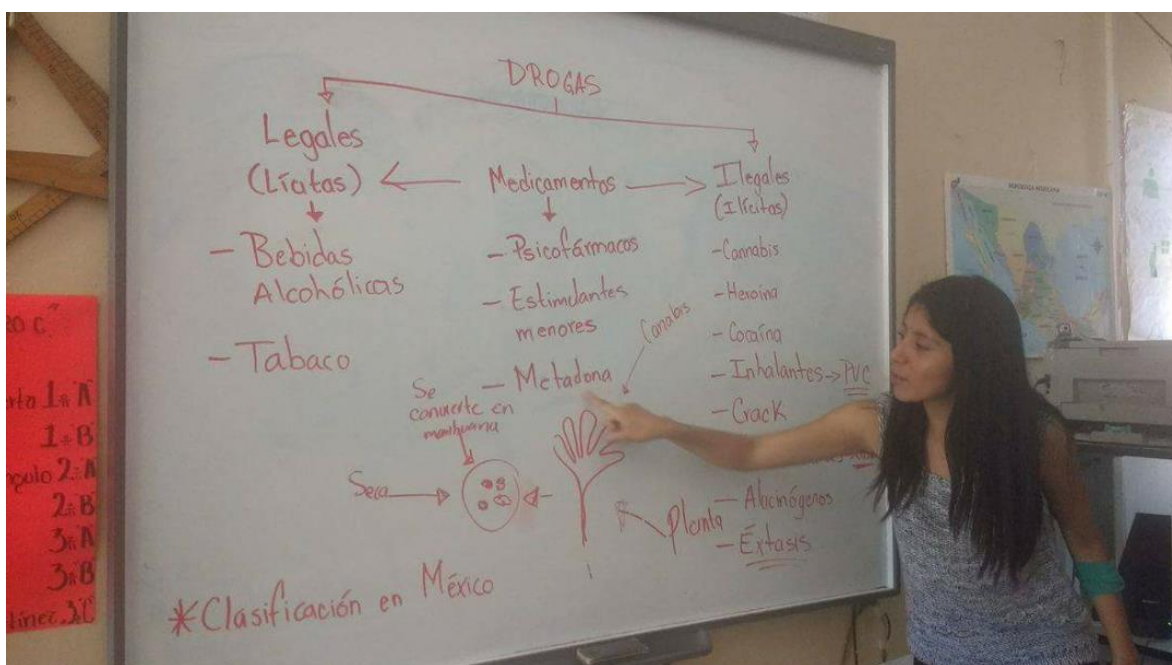 DROGAS
Legales
(Líatas)
- Bebidas
Alcohólicas
- Tabaco
Medicamentos
- Psicofármacos
- Estimulantes
menores
- Metadona
Ilegales
(Ilícitas)
- Cannabis
- Heroína
- Cocaína
- Inhalantes → PVC
- Crack
- Alucinógenos
- Éxtasis
Canabis
Se
convierte en
marihuana
Seca
Planta
*Clasificación en México
REPÚBLICA MEXICANA
1° A
1° B
2° A
2° B
3° A
3° B